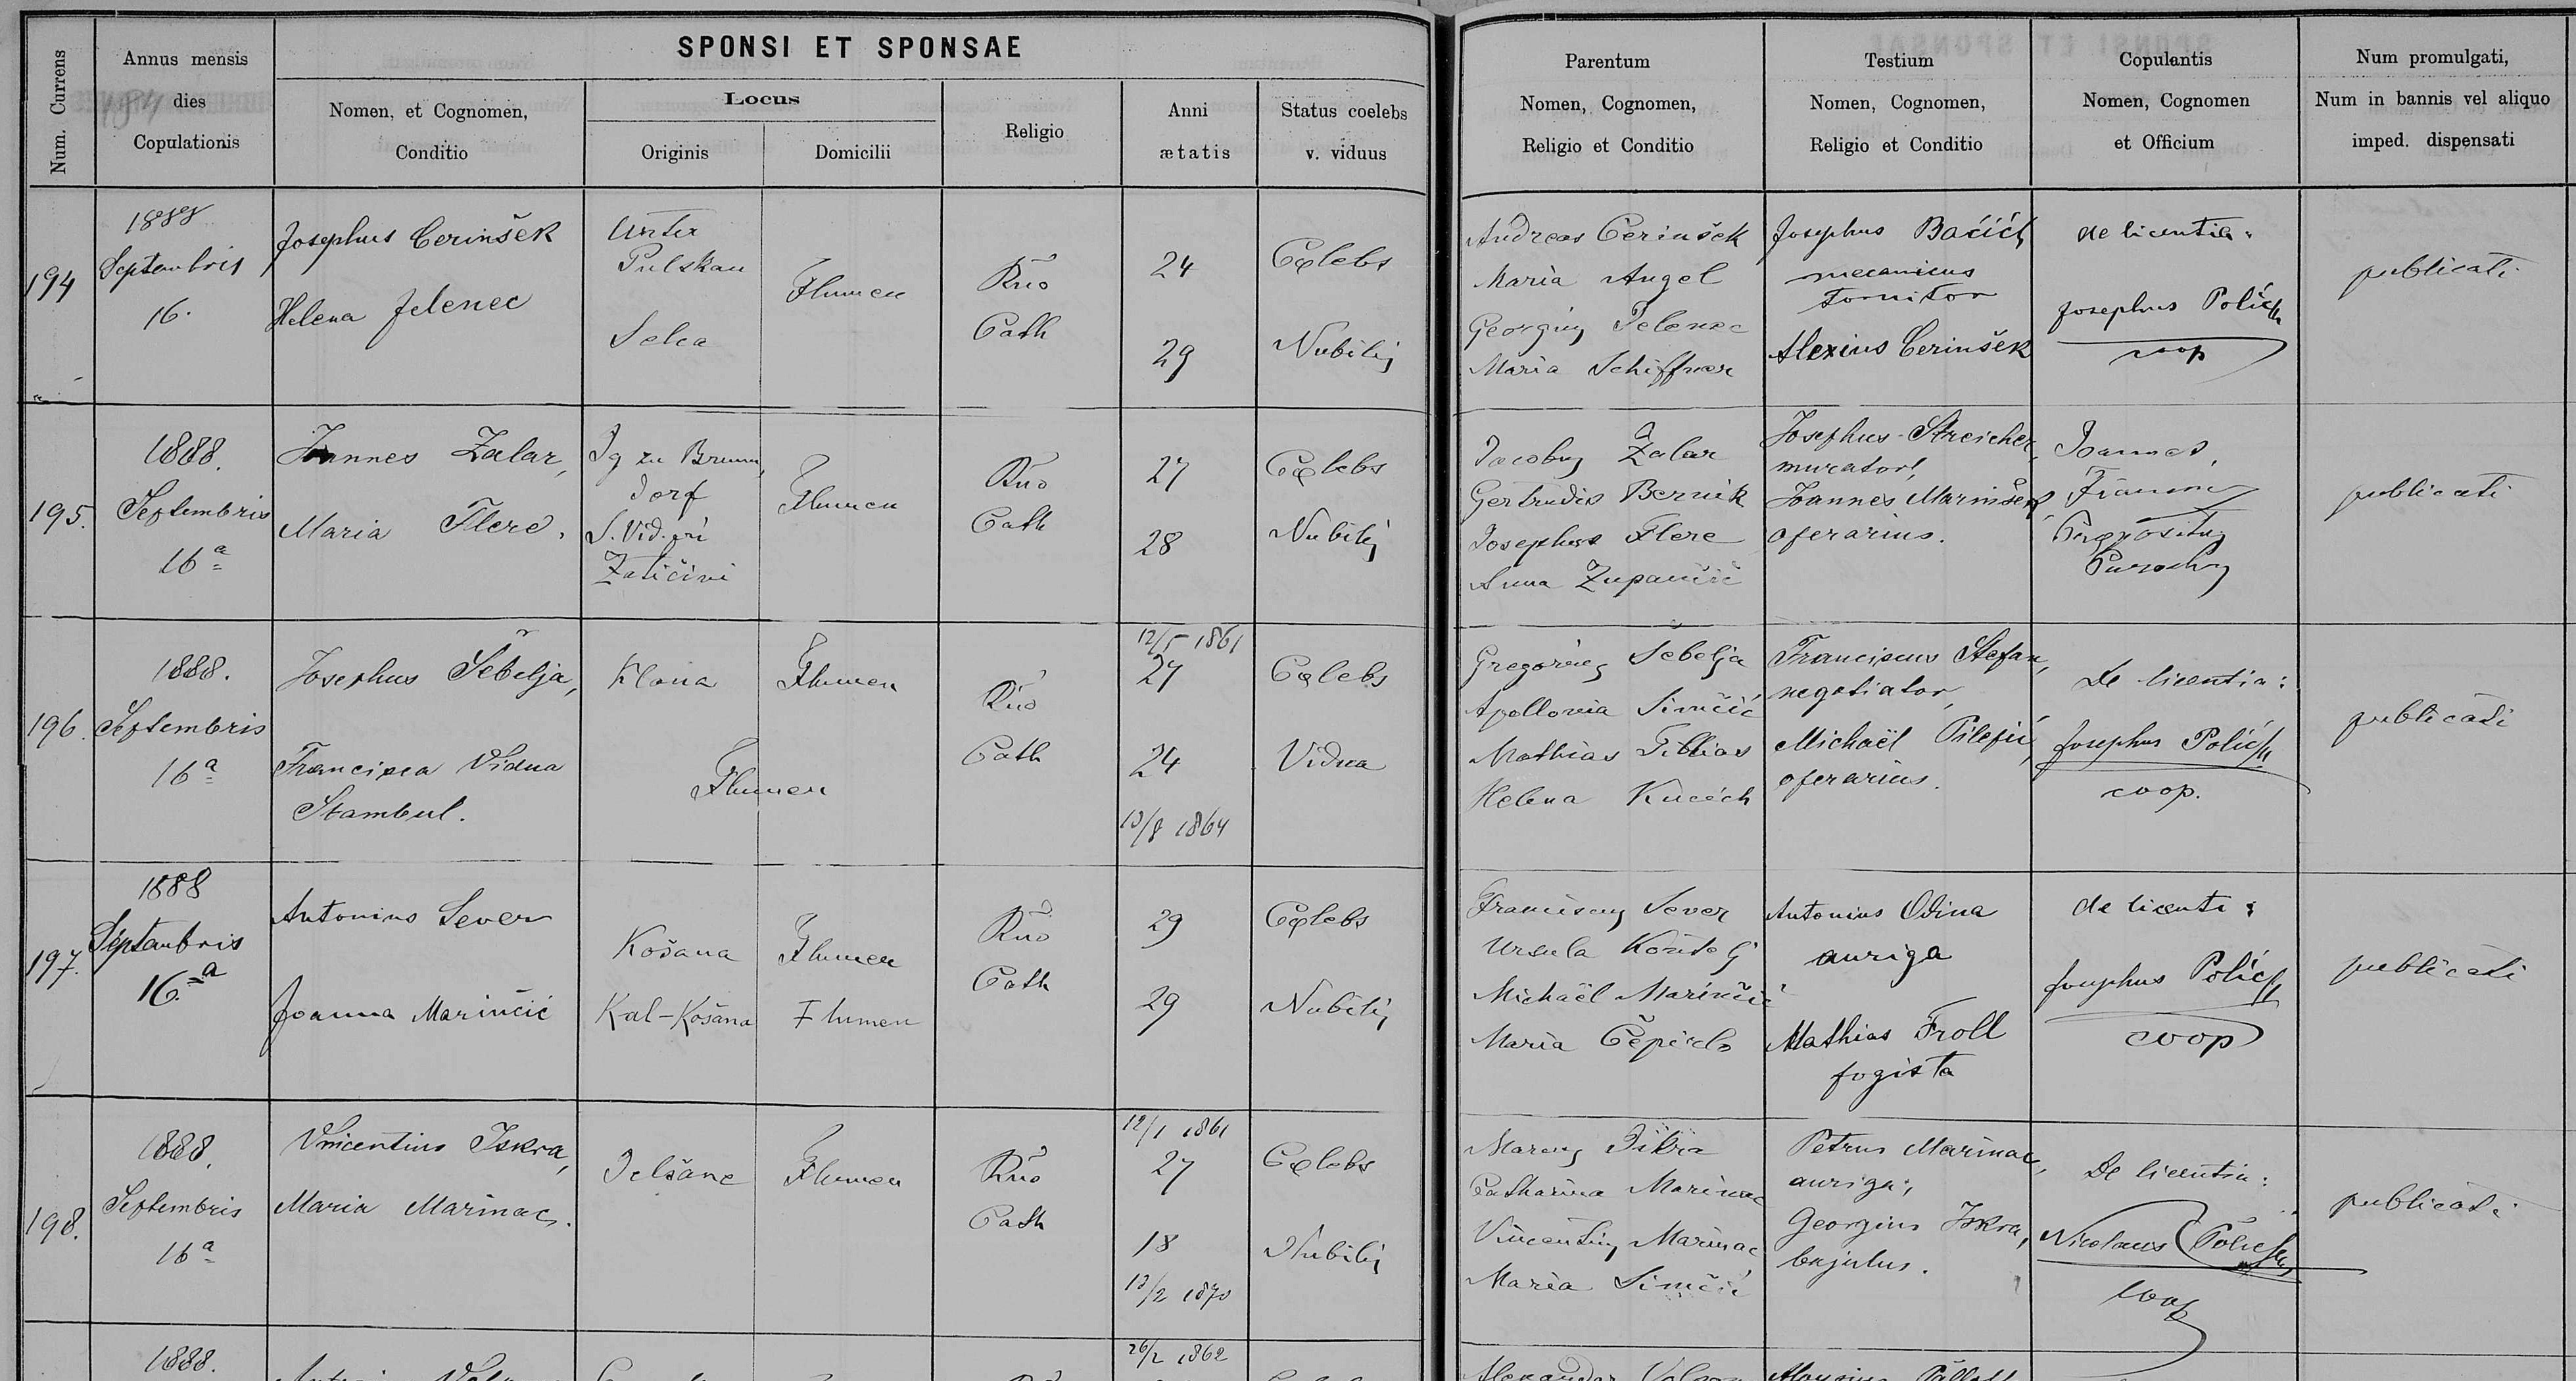 SPONSI ET SPONSAE
Num. Currens
Annus mensis
dies
Copulationis
Nomen, et Cognomen,
Conditio
Locus
Originis
Domicilii
Religio
Anni
ætatis
Status coelebs
v. viduus
Parentum
Nomen, Cognomen,
Religio et Conditio
Testium
Nomen, Cognomen,
Religio et Conditio
Copulantis
Nomen, Cognomen
et Officium
Num promulgati,
Num in bannis vel aliquo
imped. dispensati
194
1888
Septembris
16.
Josephus Cerinšek
Helena Jelenec
Unter
Pulskau
Selca
Flumen
Rno
Cath
24
29
Cœlebs
Nubilis
Andreas Cerinšek
Maria Angel
Georgius Jelenec
Maria Schiffrer
Josephus Bačich
mecanicus
tornitor
Alexius Cerinšek
de licentia:
Josephus Polich
coop
publicati
195.
1888.
Septembris
16a
Joannes Zalar,
Maria Flerè.
Ig zu Brunn,
dorf
S. Vid. pri
Zatičini
Flumen
Rno
Cath
27
28
Cœlebs
Nubilis
Jacobus Zalar
Gertrudis Bernik
Josephus Flere
Anna Zupančič
Josephus Streicher,
murator,
Joannes Marinšek,
operarius.
Joannes
Præpositus
Parochus
publicati
196.
1888.
Septembris
16a
Josephus Šebelja,
Francisca Vidua
Stambul.
Klana
Flumen
Flumen
Rno
Cath
12/5 1861
27
24
13/8 1864
Cœlebs
Vidua
Gregorius Šebelja
Apollonia Simčić
Mathias
Helena Kucich
Franciscus Stefan,
negotiator,
Michaël Pilepić,
operarius.
De licentia:
Josephus Polich
coop.
publicati
197.
1888
Septembris
16.a
Antonius Sever
Joanna Marinčić
Košana
Kal-Košana
Flumen
Flumen
Rno
Cath
29
29
Cœlebs
Nubilis
Franciscus Sever
Ursula
Michaël Marinčić
Maria
Antonius Odina
auriga
Mathias Froll
fogista
de licenti:
Josephus Polich
coop
publicati
198.
1888.
Septembris
16a
Vincentius Iskra,
Maria Marinac.
Jelšane
Flumen
Rno
Cath
12/1 1861
27
18
13/2 1870
Cœlebs
Nubilis
Marcus
Catharina Marinac
Vincentius Marinac
Maria Simčić
Petrus Marinac,
auriga,
Georgius Iskra,
bajulus.
De licentia:
Nicolaus Polich
coop
publicati
1888.
26/2 1862